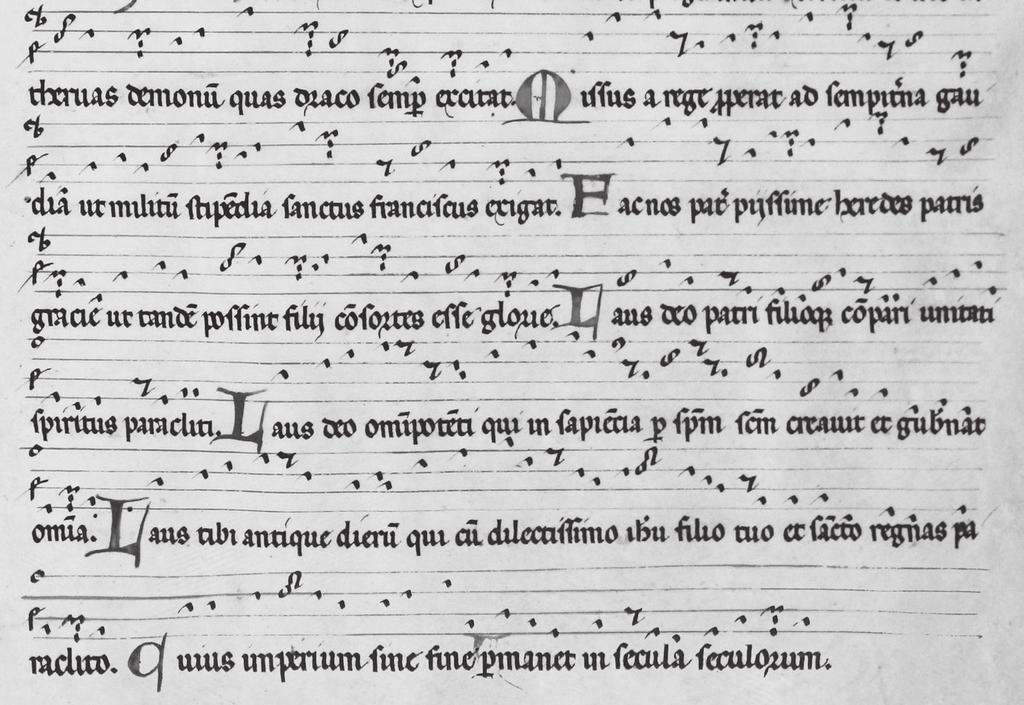 theruas demonū quas draco semꝑ excitat. Missus a rege ꝓperat ad sempit̾na gau
dia ut militū stipēdia sanctus franciscus exigat. Fac nos pat̾ pijssime heredes patris
gracie ut tandē possint filij cōsortes esse glorie. Laus deo patri filioqꝫ cōpari unitati
spiritus paracliti. Laus deo omīpotēti qui in sapiētia ꝑ spm̄ scm̄ creauit et gub̾nat
omia. Laus tibi antique dierū qui cū dilectissimo ihu filio tuo et sācto regnas pa
raclito. Cuius imperium sine fine ꝑmanet in secula seculorum.